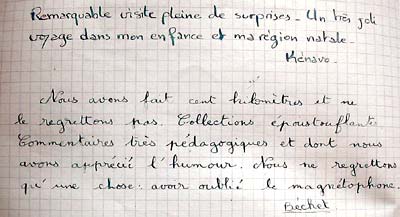 Remarquable visite pleine de surprises - Un très joli
voyage dans mon enfance et ma région natale.
Kénavo.
Nous avons fait cent kilomètres et ne
le regrettons pas. Collections époustouflantes
Commentaires très pédagogiques et dont nous
avons apprécié l'humour. Nous ne regrettons
qu'une chose : avoir oublié le magnétophone.
Béchet